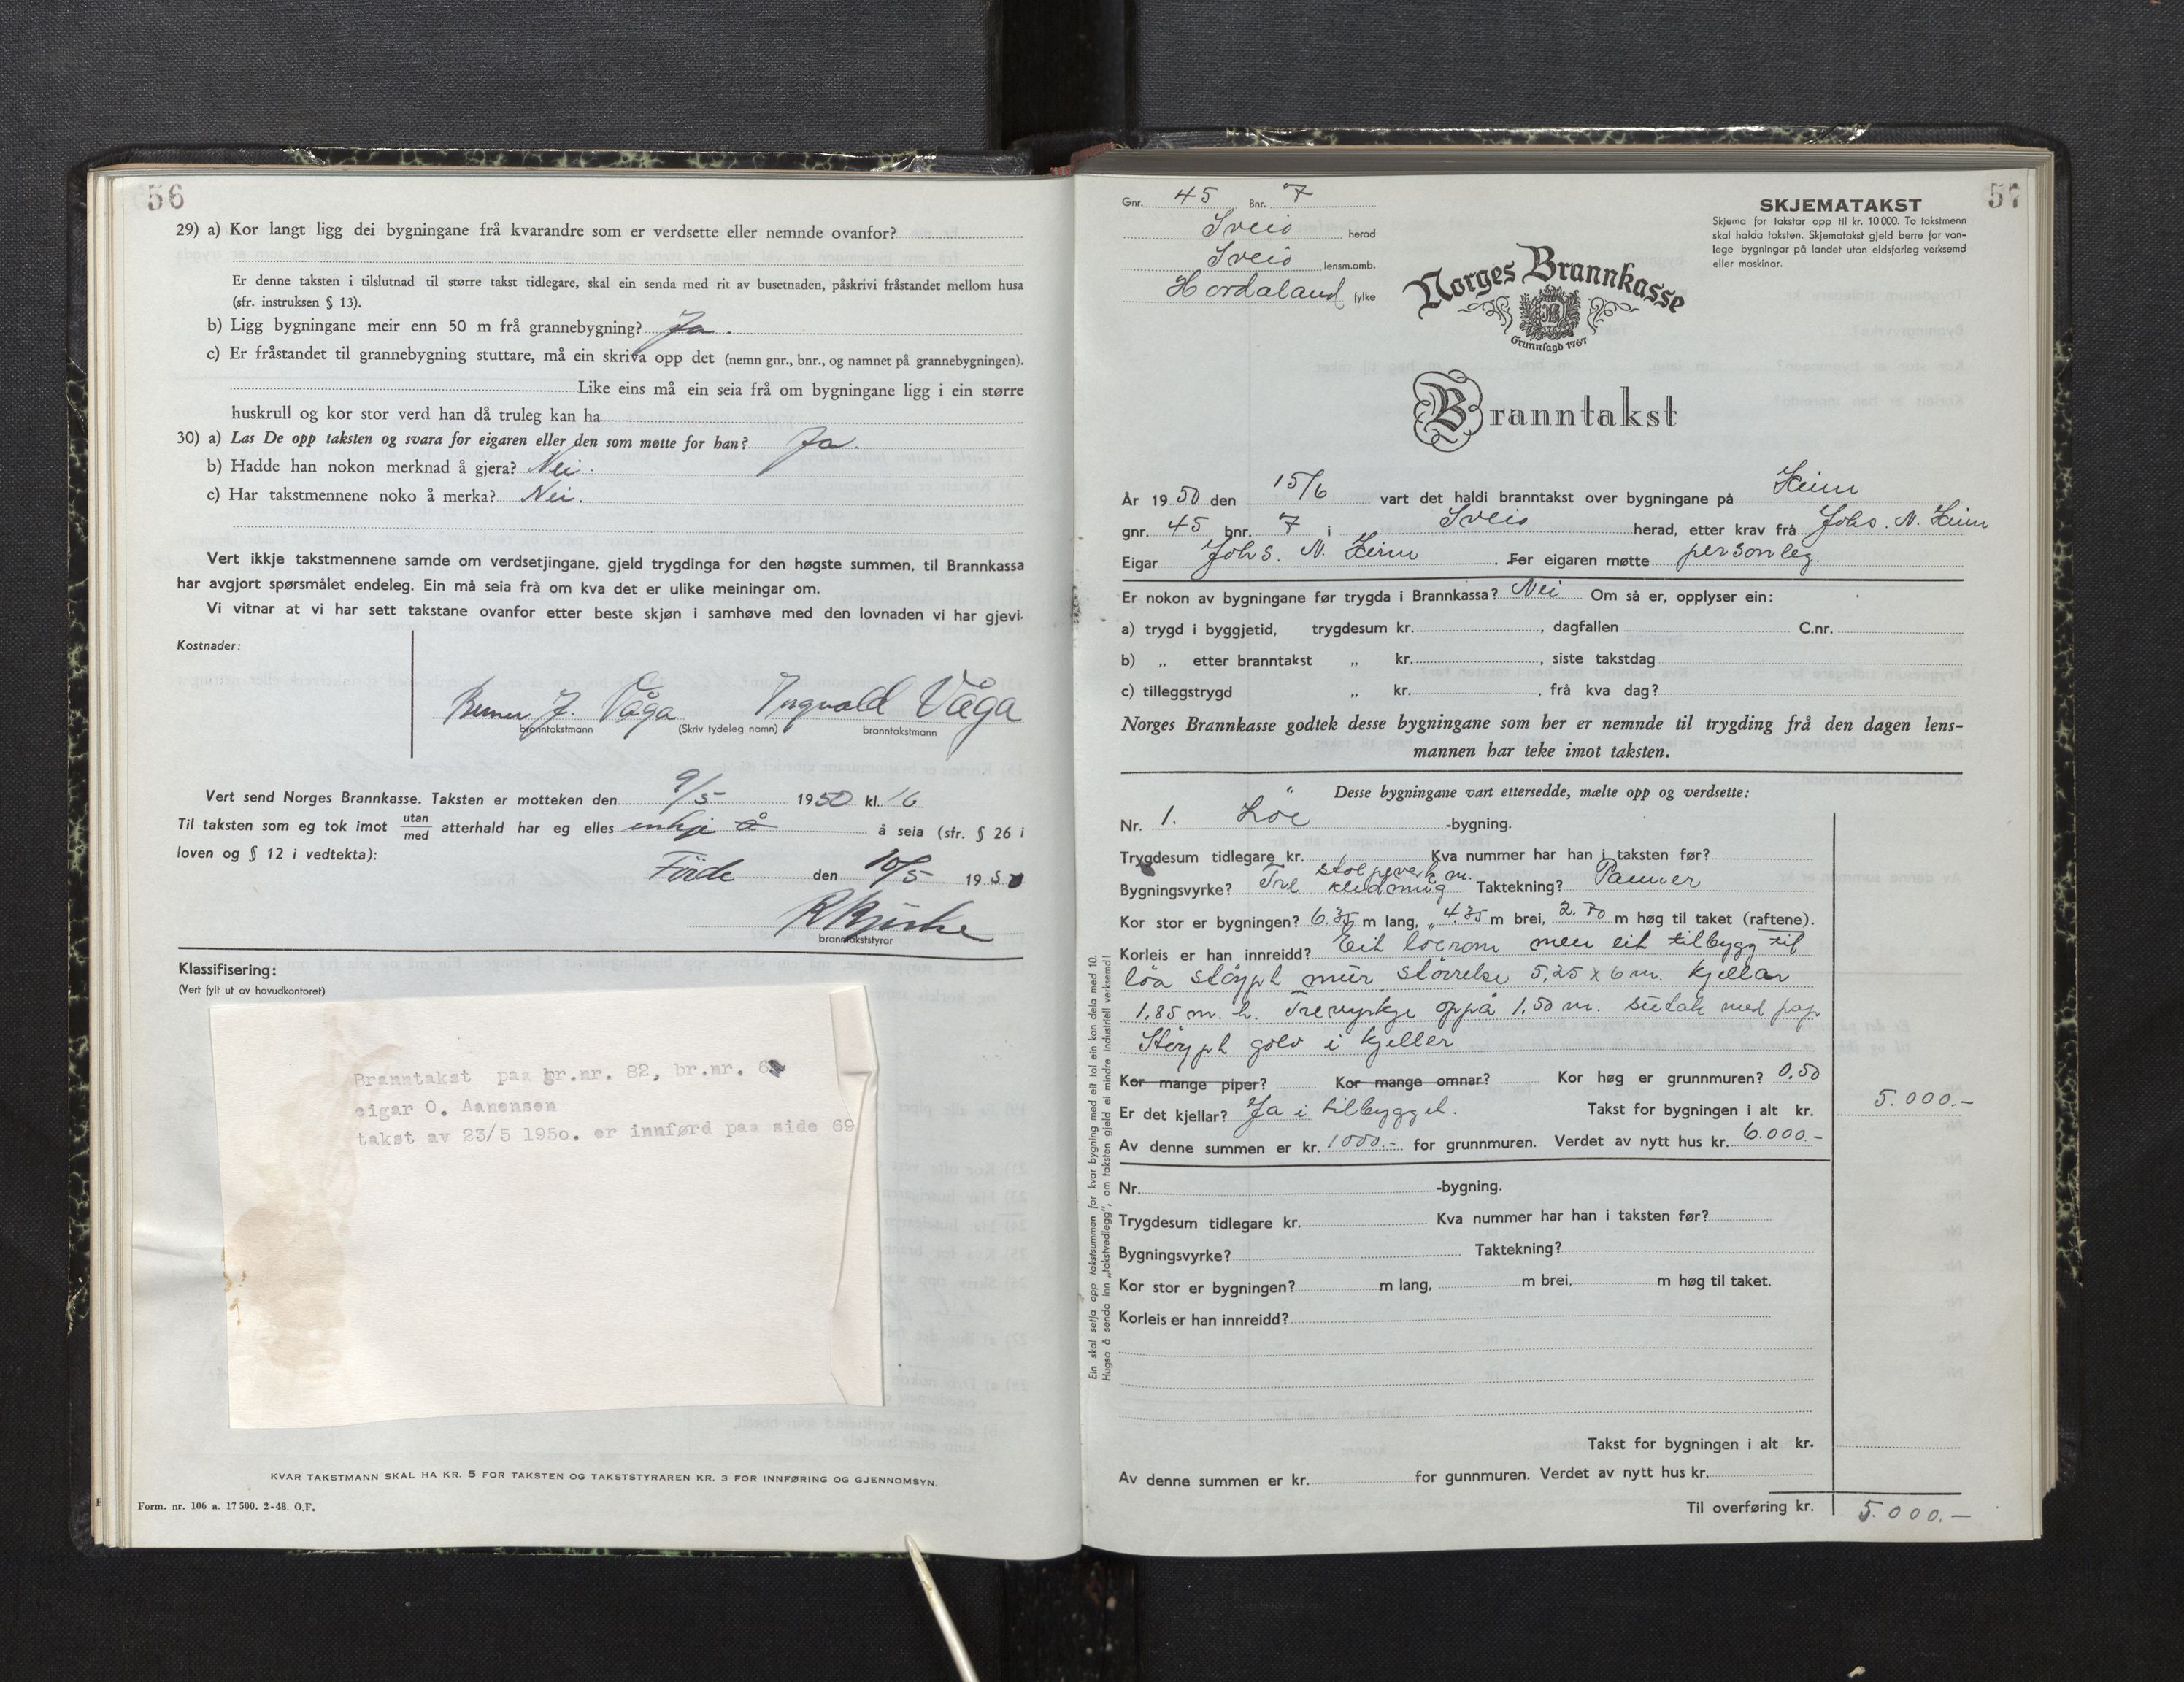 56
29) a) Kor langt ligg dei bygningane frå kvarandre som er verdsette eller nemnde ovanfor?
Er denne taksten i tilslutnad til større takst tidlegare, skal ein senda med rit av busetnaden, påskrivi fråstandet mellom husa
(sfr. instruksen § 13).
b) Ligg bygningane meir enn 50 m frå grannebygning? Ja.
c) Er fråstandet til grannebygning stuttare, må ein skriva opp det (nemn gnr., bnr., og namnet på grannebygningen).
Like eins må ein seia frå om bygningane ligg i ein større
huskrull og kor stor verd han då truleg kan ha
30) a) Las De opp taksten og svara for eigaren eller den som møtte for han? Ja.
b) Hadde han nokon merknad å gjera? Nei.
c) Har takstmennene noko å merka? Nei.
Vert ikkje takstmennene samde om verdsetjingane, gjeld trygdinga for den høgste summen, til Brannkassa
har avgjort spørsmålet endeleg. Ein må seia frå om kva det er ulike meiningar om.
Vi vitnar at vi har sett takstane ovanfor etter beste skjøn i samhøve med den lovnaden vi har gjevi.
Kostnader:
J. Våga Ingvald Våga
branntakstmann (Skriv tydeleg namn) branntakstmann
Vert send Norges Brannkasse. Taksten er motteken den 9/5 1950 kl. 16
Til taksten som eg tok imot utan/med atterhald har eg elles å seia (sfr. § 26 i
loven og § 12 i vedtekta):
Förde den 10/5 1950
branntakststyrar
Klassifisering:
(Vert fylt ut av hovudkontoret)
Branntakst paa gr.nr. 82, br.nr. 6
eigar O. Aanensen
takst av 23/5 1950. er innførd paa side 69
KVAR TAKSTMANN SKAL HA KR. 5 FOR TAKSTEN OG TAKSTSTYRAREN KR. 3 FOR INNFØRING OG GJENNOMSYN.
Form. nr. 106 a. 17 500. 2-48. O.F.
57
Gnr. 45 Bnr. 7
Sveio herad
Sveio lensm.omb.
Hordaland fylke
SKJEMATAKST
Skjema for takstar opp til kr. 10 000. To takstmenn
skal halda taksten. Skjematakst gjeld berre for van-
lege bygningar på landet utan eldsfarleg verksemd
eller maskinar.
Norges Brannkasse
Grunnlagd 1767
Branntakst
År 1950 den 15/6 vart det haldi branntakst over bygningane på Heim
gnr. 45 bnr. 7 i Sveio herad, etter krav frå Johs. N. Heim
Eigar Johs. N. Heim. For eigaren møtte personleg.
Er nokon av bygningane før trygda i Brannkassa? Nei Om så er, opplyser ein:
a) trygd i byggjetid, trygdesum kr. , dagfallen C.nr.
b) „ etter branntakst „ kr. , siste takstdag
c) tilleggstrygd „ kr. , frå kva dag?
Norges Brannkasse godtek desse bygningane som her er nemnde til trygding frå den dagen lens-
mannen har teke imot taksten.
Desse bygningane vart ettersedde, mælte opp og verdsette:
Nr. 1. Löe -bygning.
Trygdesum tidlegare kr. Kva nummer har han i taksten før?
Bygningsvyrke? Tre stolpeverk m. kledning Taktekning? Panner
Kor stor er bygningen? 6.35 m lang, 4.35 m brei, 2.70 m høg til taket (raftene).
Korleis er han innreidd? Eit löerom men eit tilbygg til
löa stöypt mur större­lse 5,25 x 6 m. Kjellar
1.85 m. h. Trevyrkje oppå 1.50 m. sutak med pap
Stöypt golv i kjeller
Kor mange piper? Kor mange omnar? Kor høg er grunnmuren? 0.50
Er det kjellar? Ja i tilbygget. Takst for bygningen i alt kr. 5.000.-
Av denne summen er kr. 1000.- for grunnmuren. Verdet av nytt hus kr. 6.000.-
Nr. -bygning.
Trygdesum tidlegare kr. Kva nummer har han i taksten før?
Bygningsvyrke? Taktekning?
Kor stor er bygningen? m lang, m brei, m høg til taket.
Korleis er han innreidd?
Takst for bygningen i alt kr.
Av denne summen er kr. for gunnmuren. Verdet av nytt hus kr.
Til overføring kr. 5.000.-
Ein skal setja opp takstsummen for kvar bygning med eit tal ein kan dela med 10.
Hugsa å senda inn „takstvedlegg", om taksten gjeld ei mindre industriell verksemd!